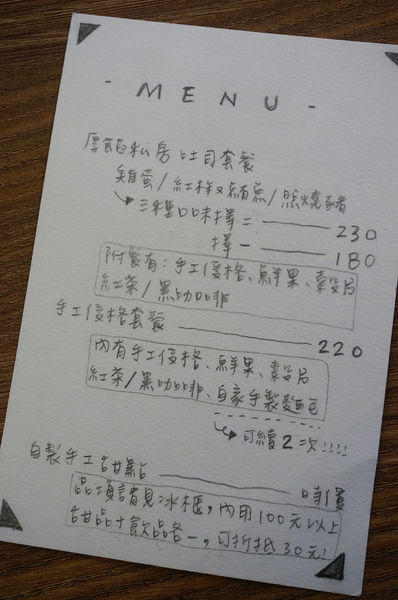 - MENU -
厚飽私房吐司套餐
雞蛋/紅椒鮪魚/照燒豬
三種口味擇二 —— 230
擇一 —— 180
附餐有:手工優格、鮮果、穀片
紅茶/黑咖啡
手工優格套餐 —— 220
內有手工優格、鮮果、穀片
紅茶/黑咖啡、自家手製麵包
可續2次!!!!
自製手工甜點 —— 時價
品項請見冰櫃,內用100元以上
甜品+飲品各一,可折抵30元!